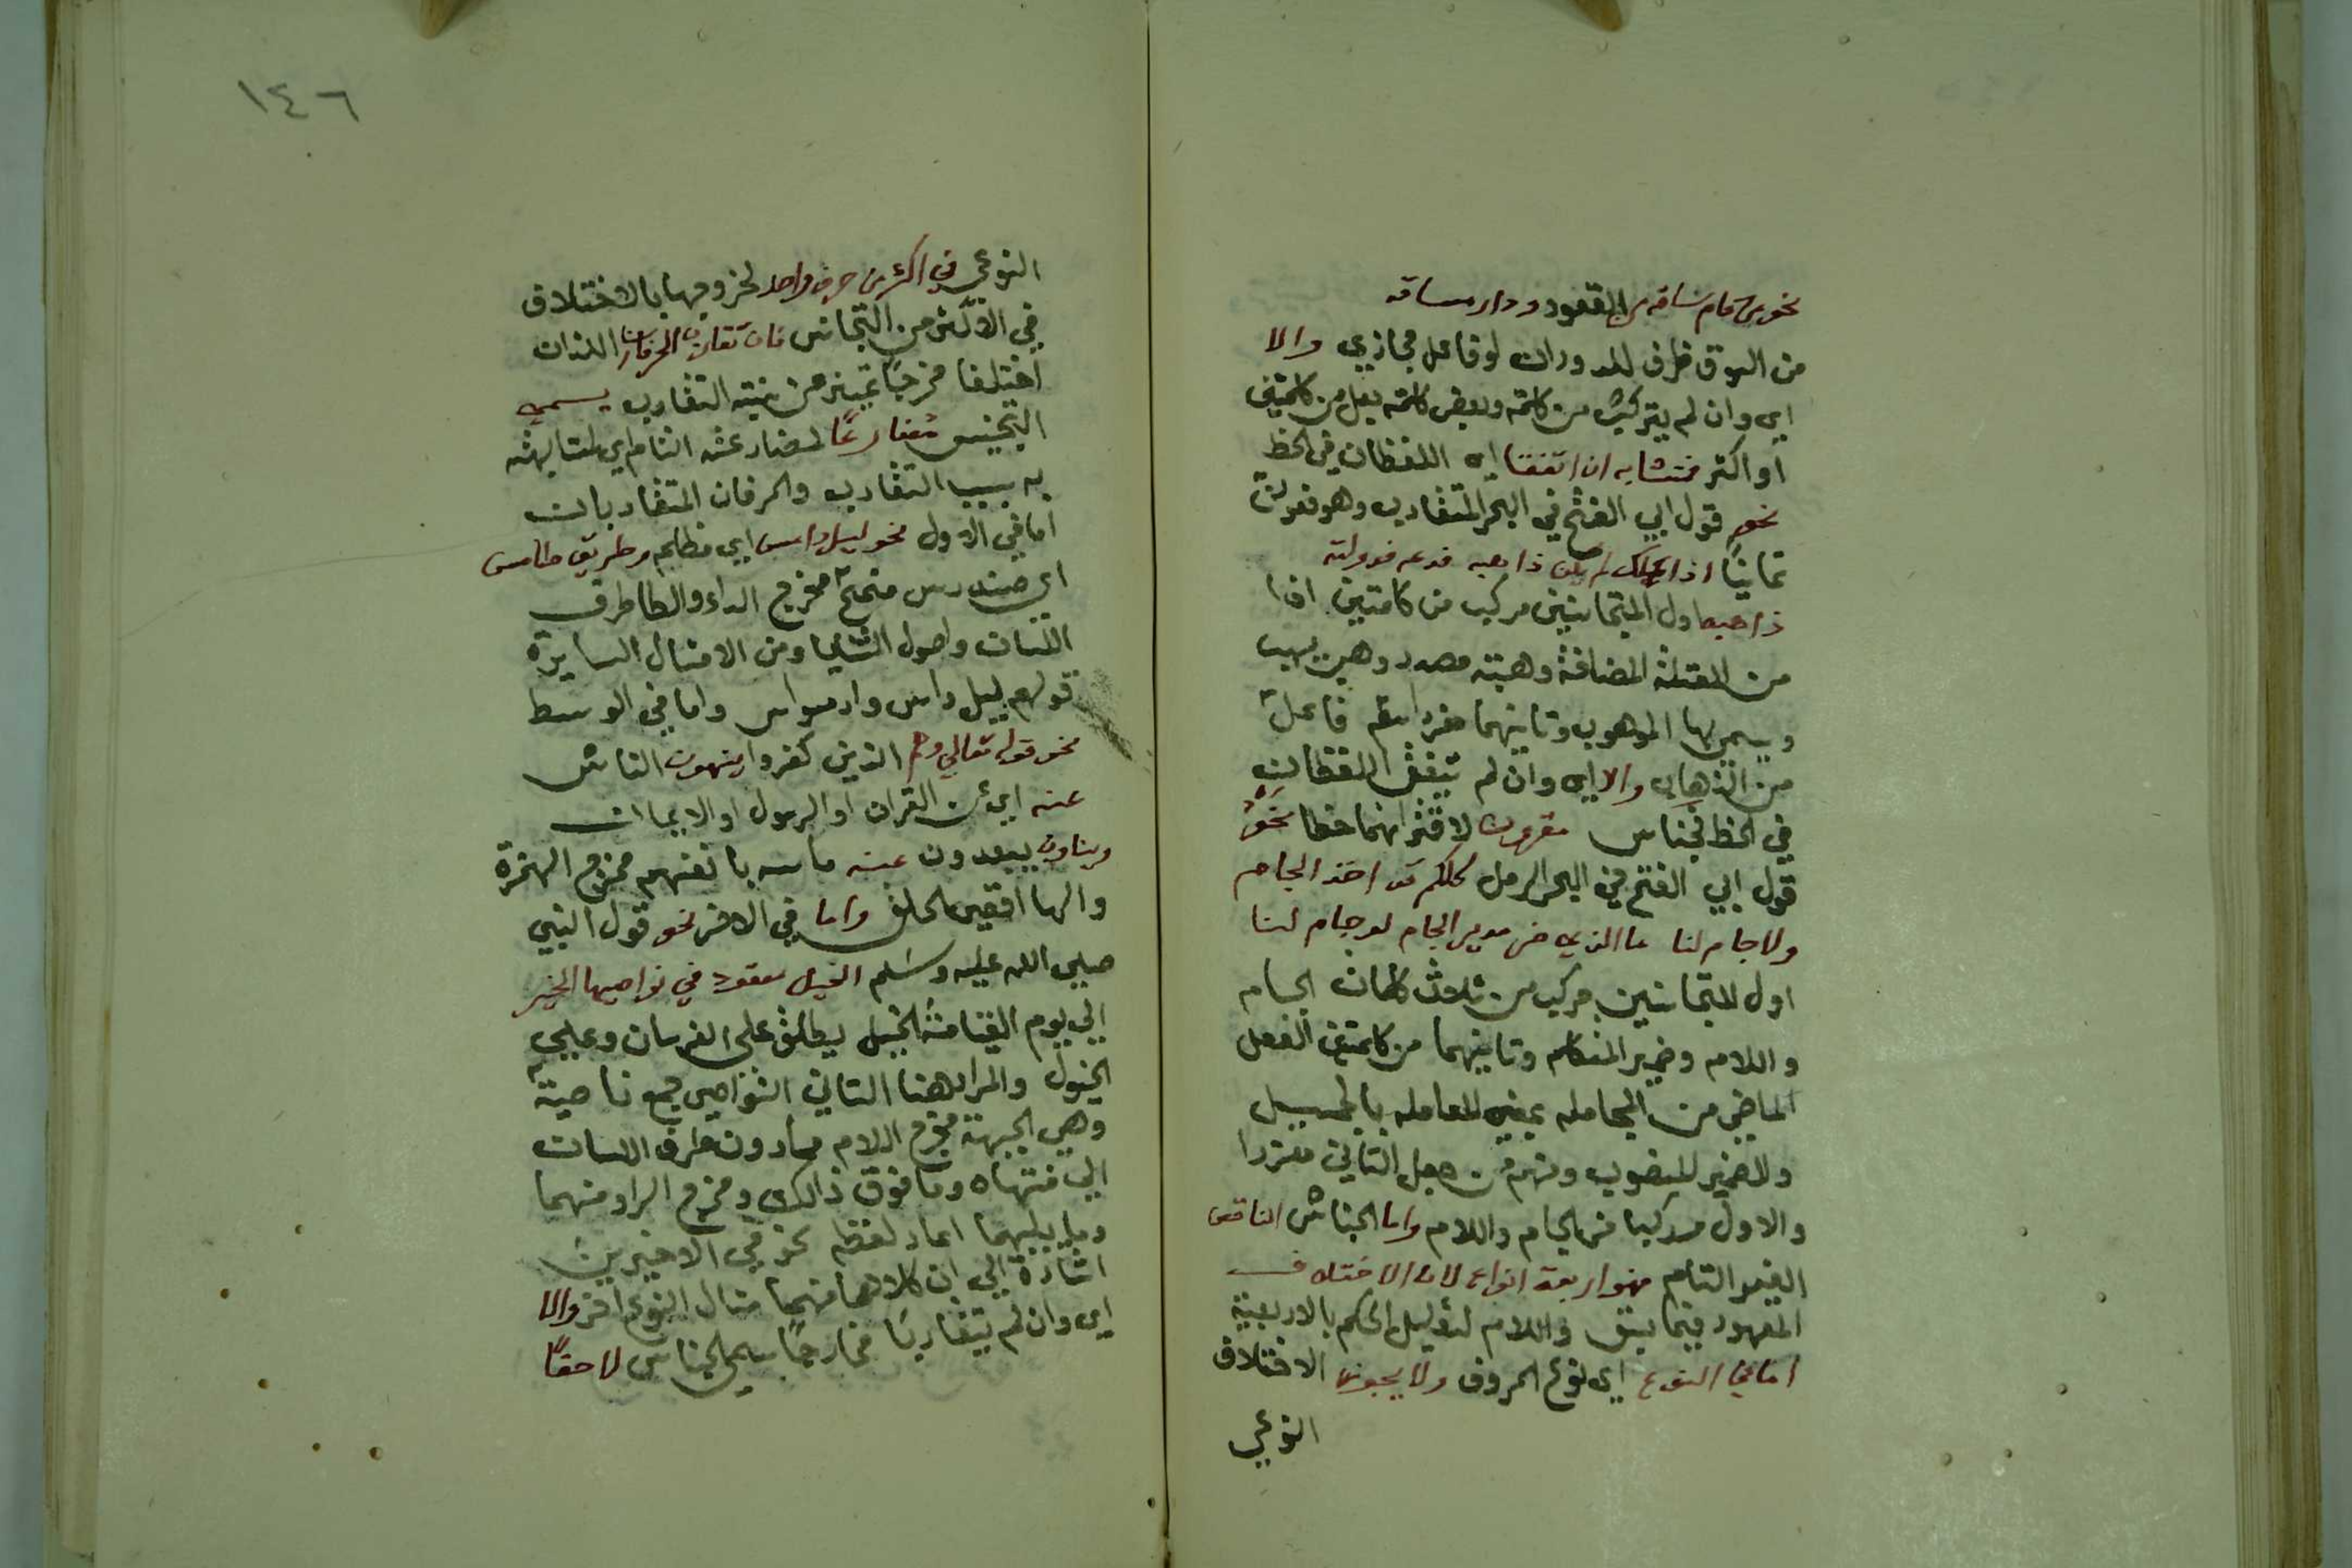 نحو من قام بساقه من القعود ودار مساقه
من السوق ظرف للدوران او فاعل مجازي والا
اي وان لم يتركب من كلمة وبعض كلمة بل من كلمتين
او اكثر فمتشابه ان اتفقا اي اللفظان في الخط
نحو قول ابي الفتح في البحر المتقارب وهو فعولن
ثمانيا اذا ملك لم يكن ذا هبه فدعه فدولته
ذاهبه اول المتجانسين مركب من كلمتين اذا
من المضافة وهبته مصدر وهب يهب
ويسمى بها الموهوب وثانيهما مفرد اسم فاعل
من الذهاب والا اي وان لم يتفق اللفظان
في الخط فجناس مفروق لافتراقهما خطا نحو
قول ابي الفتح في البحر الرمل كلكم قد اخذ الجام
ولا جام لنا ما الذي ضر مدير الجام لو جاملنا
اول المتجانسين مركب من ثلاث كلمات الجام
واللام وضمير المتكلم وثانيهما من كلمتين الفعل
الماضي من المجامله بمعنى المعامله بالجميل
والضمير المنصوب ومنهم من جعل الثاني مفردا
والاول مركبا من الجام واللام واما الجناس الناقص
الغير التام فهو اربعة انواع لان الاختلاف
المعهود فيما سبق واللام لتوليل الحكم بالاربعة
اما في النوع اي نوع الحروف ولا يجوز الاختلاف
النوعي
١٤٦
النوعي في اكثر من حرف واحد لخروجهما بالاختلاف
في الاكثر من التجانس فان تقارب الحرفان اللذان
اختلفا مخرجا تمييز من نسبة التقارب يسمى
التجنيس مضارعا لمضارعته التام اي لمشابهته
به بسبب التقارب والحرفان المتقاربان
اما في الاول نحو ليل دامس اي مظلم وطريق طامس
اي مندرس مخرج الدال والطا طرف
اللسان واصول الثنايا ومن الامثال السايرة
قولهم ليل دامس واما في الوسط
نحو قوله تعالى وهم الذين كفروا ينهون الناس
عنه اي عن القران او الرسول او الايمان
ويناون يبعدون عنه بانفسهم مخرج الهمزة
والها اقصى الحلق واما في الاخر نحو قول النبي
صلى الله عليه وسلم الخيل معقود في نواصيها الخير
الى يوم القيامة الخيل يطلق على الفرسان وعلى
الخيول والمراد هنا الثاني النواصي جمع ناصية
وهي الجبهة مخرج اللام مادون طرف اللسان
الى منتهاه وما فوق ذالك ومخرج الرا منهما
وما يليهما اعاد لفظ نحو في الاخيرين
اشارة الى ان كلا منهما مثال النوع اخر والا
اي وان لم يتقاربا مخارجا يسمى الجناس لاحقا